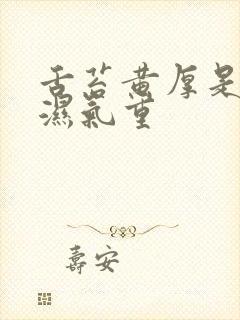 舌苔黄厚是
濕氣重
壽安